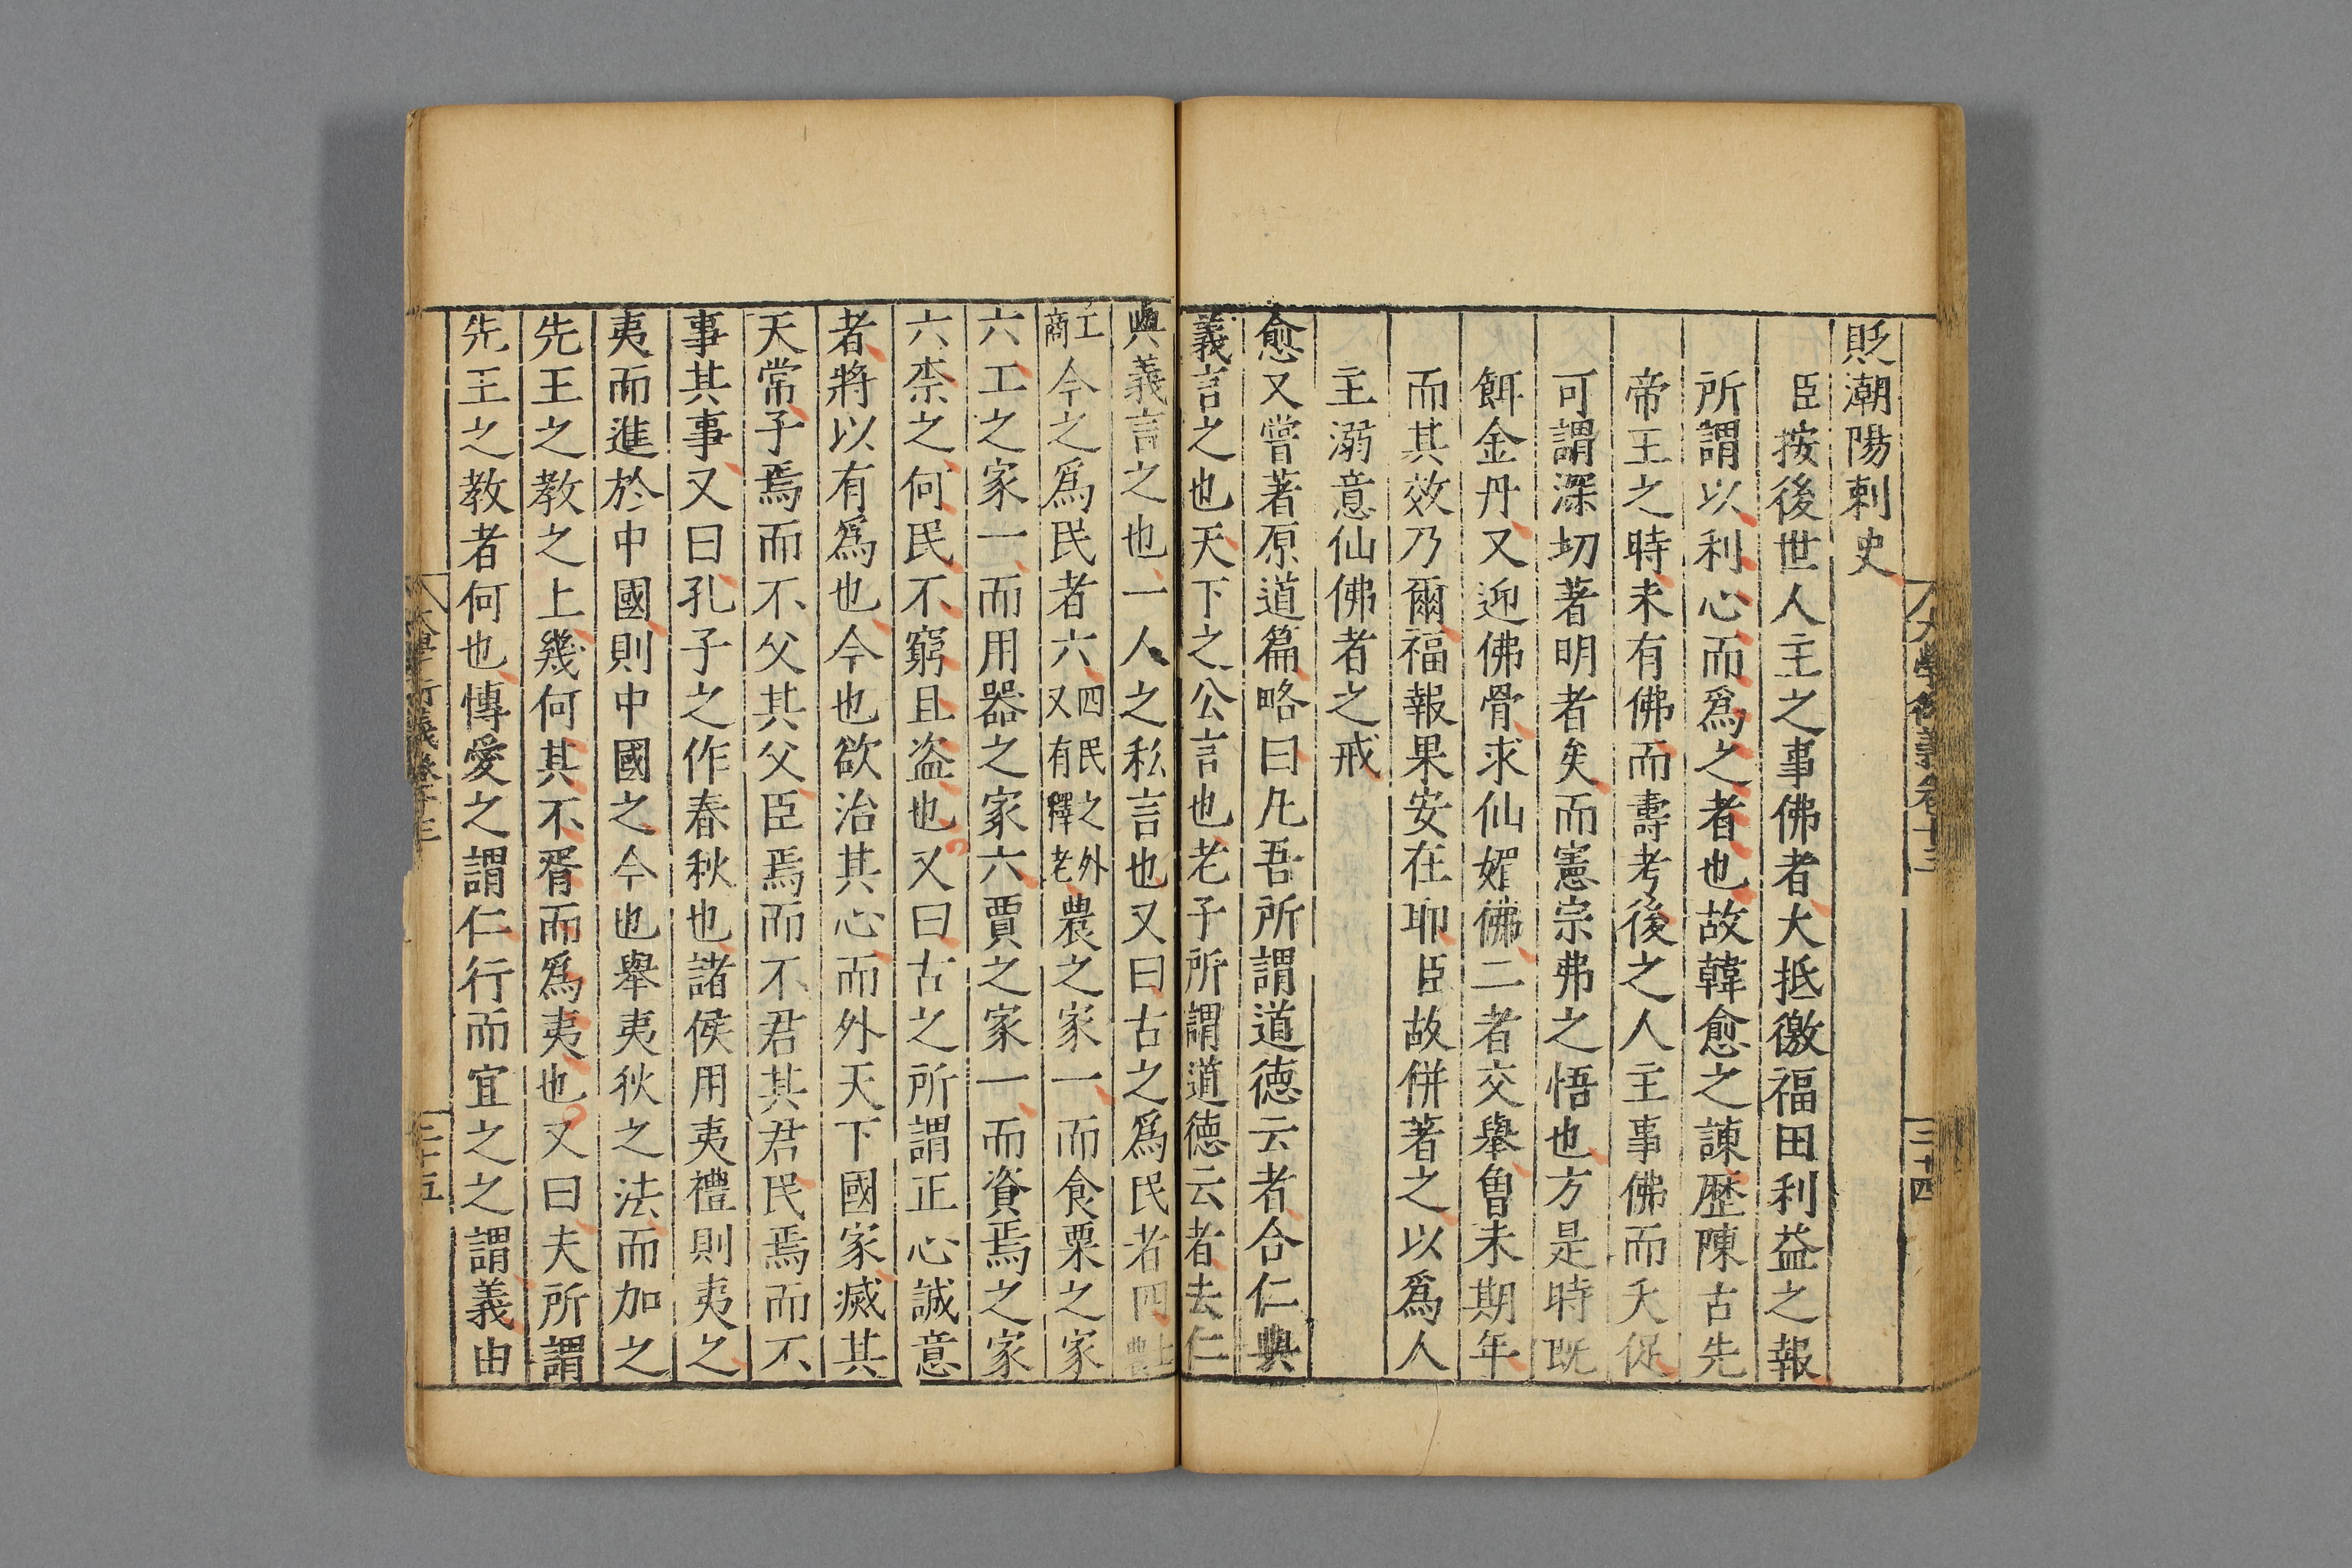 大學衍義卷十三
三十四
貶潮陽刺史
臣按後世人主之事佛者大抵徼福田利益之報
所謂以利心而爲之者也故韓愈之諫歷陳古先
帝王之時未有佛而壽考後之人主事佛而夭促
可謂深切著明者矣而憲宗弗之悟也方是時既
餌金丹又迎佛骨求仙媚佛二者交舉曾未期年
而其效乃爾福報果安在耶臣故併著之以爲人
主溺意仙佛者之戒
愈又嘗著原道篇略曰凡吾所謂道德云者合仁與
義言之也天下之公言也老子所謂道德云者去仁
與義言之也一人之私言也又曰古之爲民者四士農
工商今之爲民者六四民之外又有釋老農之家一而食粟之家
六工之家一而用器之家六賈之家一而資焉之家
六柰之何民不窮且盗也又曰古之所謂正心誠意
者將以有爲也今也欲治其心而外天下國家滅其
天常子焉而不父其父臣焉而不君其君民焉而不
事其事又曰孔子之作春秋也諸侯用夷禮則夷之
夷而進於中國則中國之今也舉夷狄之法而加之
先王之教之上幾何其不胥而爲夷也又曰夫所謂
先王之教者何也慱愛之謂仁行而宜之之謂義由
大學衍義卷十三
三十五